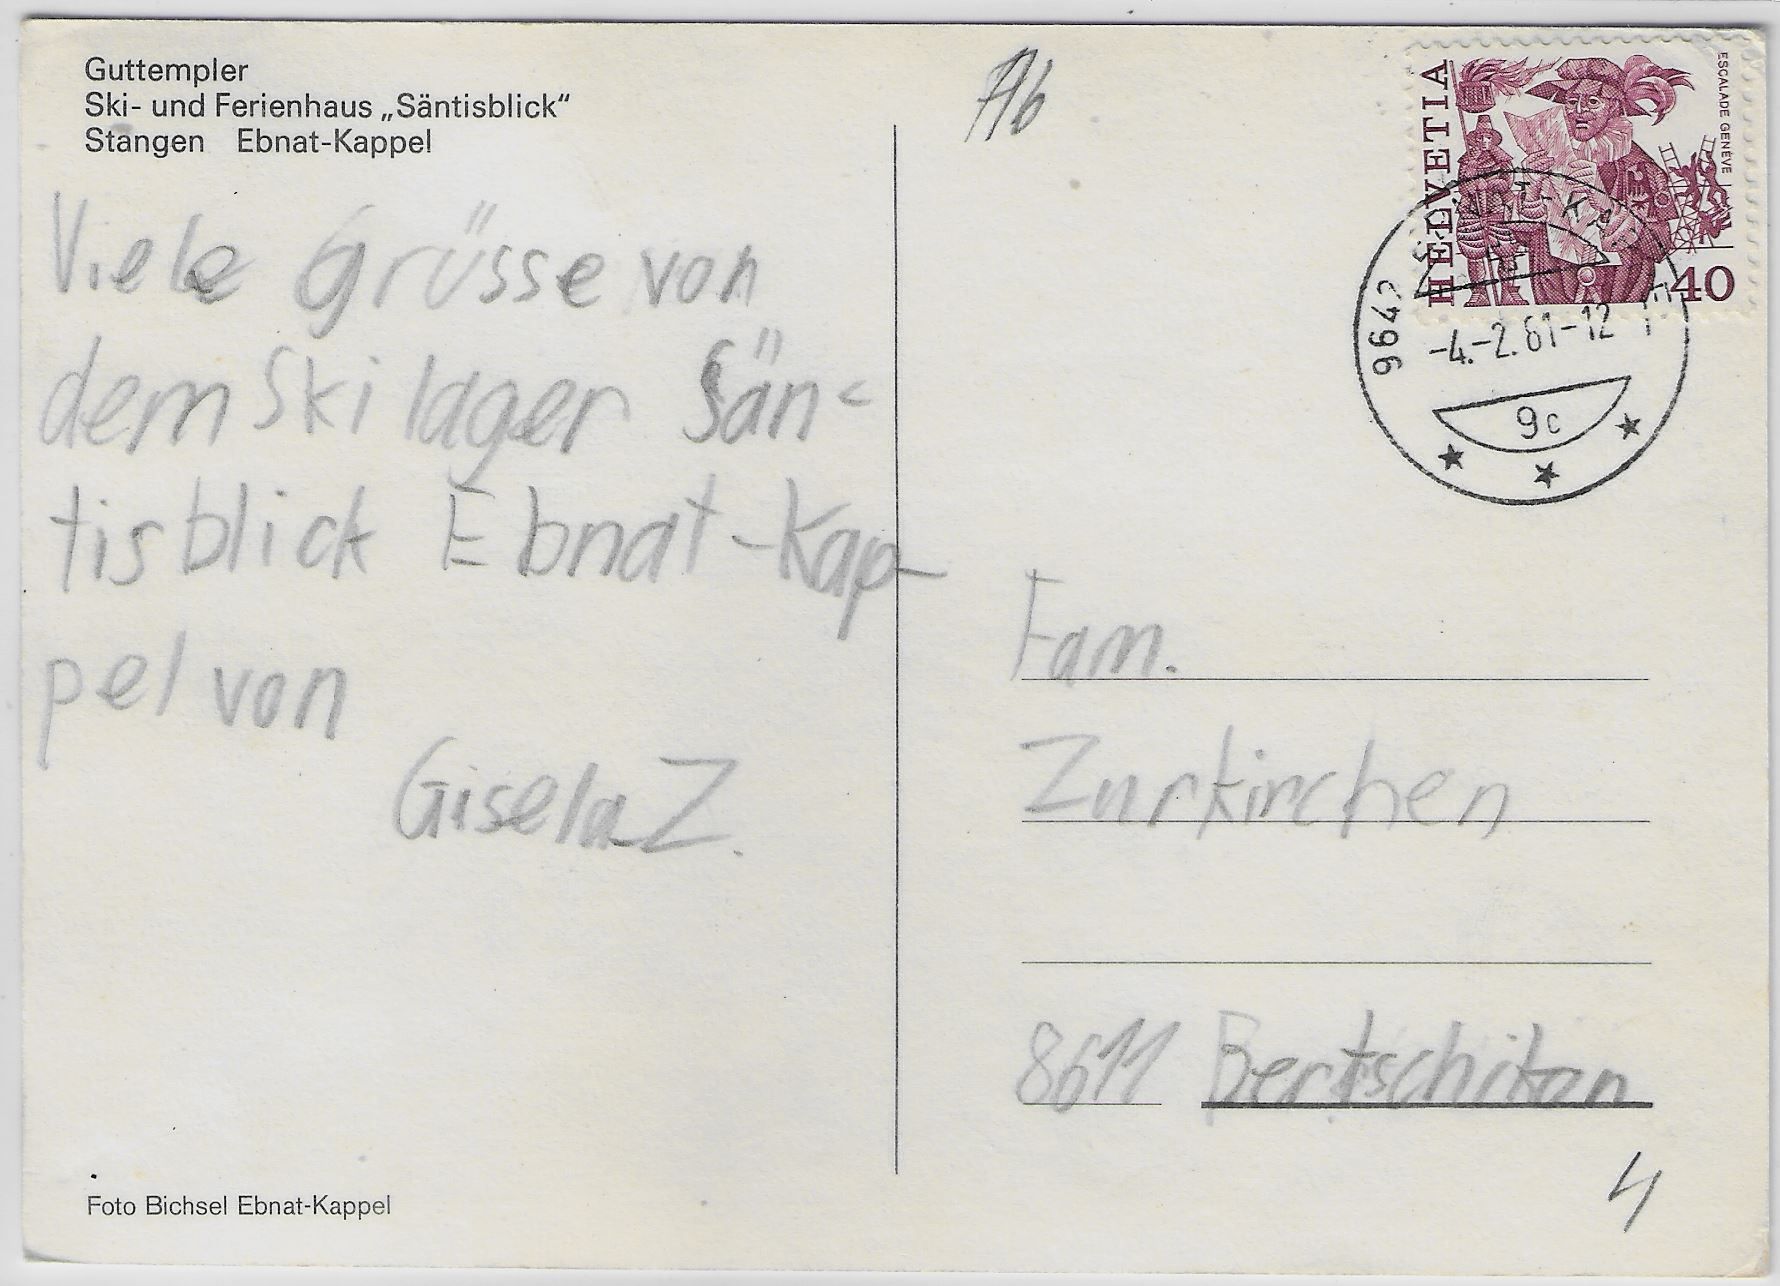 Guttempler
Ski- und Ferienhaus „Säntisblick“
Stangen Ebnat-Kappel
Viele Grüsse von
dem Skilager Sän-
tisblick Ebnat-Kap-
pel von
Gisela Z.
Foto Bichsel Ebnat-Kappel
Ab
HELVETIA
ESCALADE GENÈVE
40
9642
-4.-2.81-12
9c
Fam.
Zurkirchen
8611 Bertschikon
4